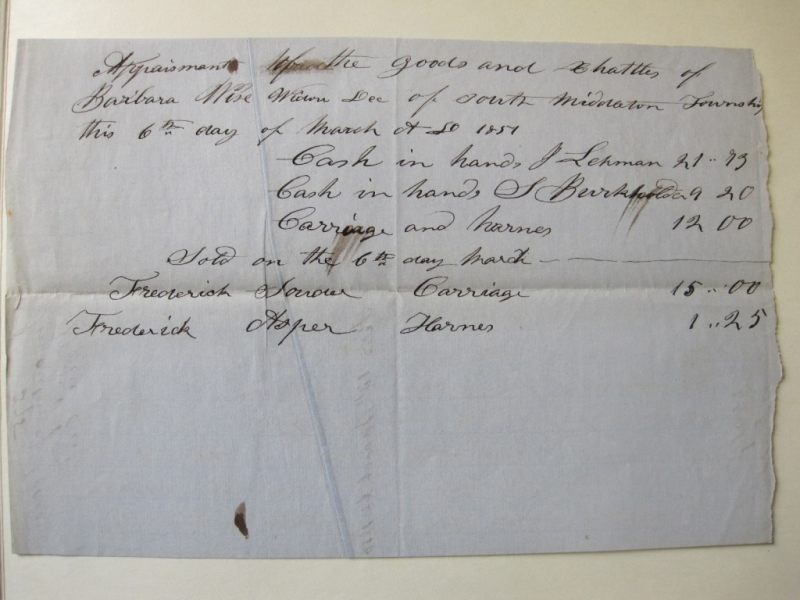 Appaisment of the goods and Chattles of
Barbara Wise Widow Dec of South Middleton Township
this 6th day of March A D 1851
Cash in hands J Lehman 21..93
Cash in hands S Burkholder 9 20
Carriage and harnes 12 00
Sold on the 6th day March
Frederick Souder Carriage 15..00
Frederick Asper Harnes 1..25